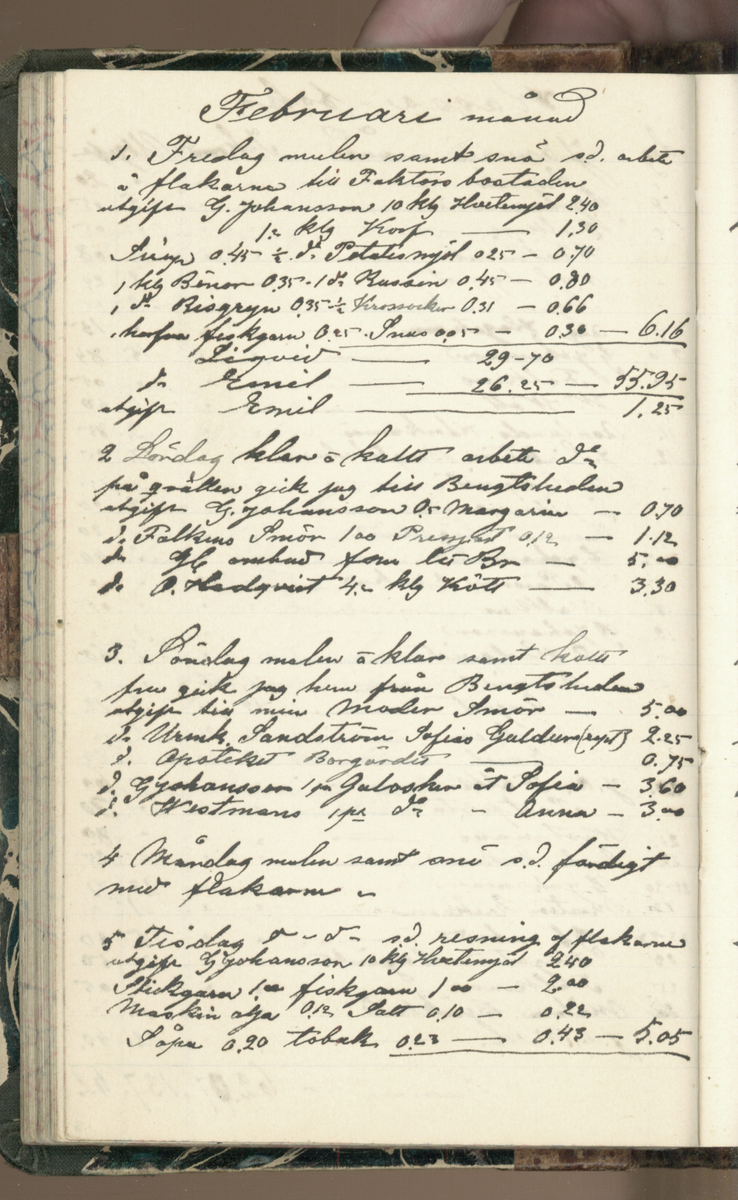 Februari månad
1. Fredag mulen samt snö s.d. arbete
å flakarne till Faktors bostaden
utgift G. Johansson 10 klg Hvetemjöl 2.40
1.- klg Korf — 1.30
Sirup 0.45 ½ do Potatismjöl 0.25 — 0.70
1 klg Bönor 0.35 - 1 do Russin 0.45 — 0.80
1 do Risgryn 0.35 ½ Krossocker 0.31 — 0.66
1 harfva fiskgarn 0.25 Snus 0.05 — 0.30 — 6.16
Liqvid — 29-70
d. Emil — 26.25 — 55.95
utgift Emil — 1.25
2 Lördag klar å kallt arbete do
på qvällen gick jag till Bengtsheden
utgift G. Johansson 0.5 Margarin — 0.70
d. Falkens Smör 1.00 Pressjäst 0.12 — 1.12
d. ombud — 5.00
d. O. Hedqvist 4.- klg Kött — 3.30
3. Söndag mulen å klar samt kallt
fm gick jag hem från Bengtsheden
utgift till min Moder Smör — 5.00
d. Urmk. Sandström Sofias Guldur (rept) 2.25
d. Apoteket Borgärdet — 0.75
d. G Johansson 1 pr Galoscher åt Sofia — 3.60
d. Westmans 1 pr do - Anna — 3.00
4 Måndag mulen samt snö s.d. färdigt
med flakarne
5 Tisdag d - d - s.d. resning af flakarne
utgift G Johansson 10 klg Hvetemjöl 2.40
Stickgarn 1.00 fiskgarn 1.00 — 2.00
Maskin olja 0.12 Salt 0.10 — 0.22
Såpa 0.20 tobak 0.23 — 0.43 — 5.05